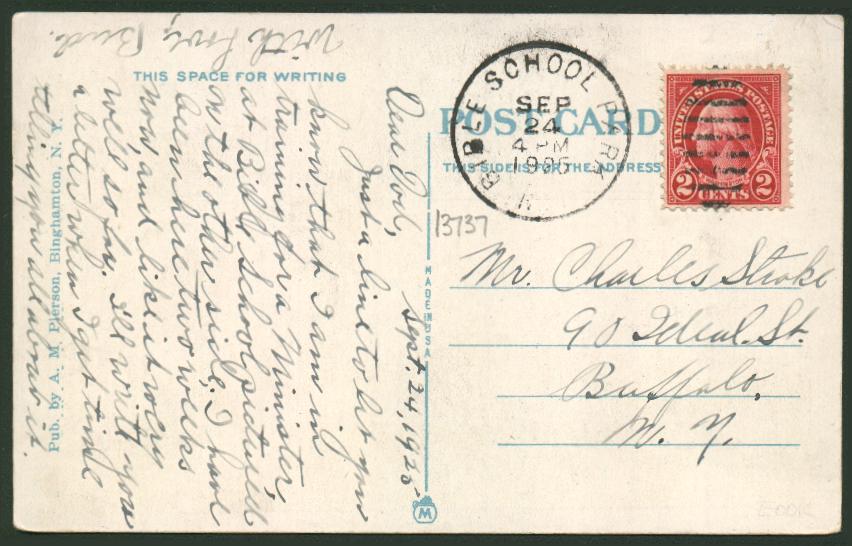 THIS SPACE FOR WRITING
Sept. 24, 1925
Just a line to let you
know that I am in
training for a Minister,
at Bible School pictured
on the other side, I have
been here two weeks
now, and like it very
well so far. I'll write you
a letter when I get time
telling you all about it.
With love, Bud.
Pub. by A. M. Pierson, Binghamton, N. Y.
MADE IN USA
M
POST CARD
THIS SIDE IS FOR THE ADDRESS
BIBLE SCHOOL PARK
SEP
24
4 PM
UNITED STATES POSTAGE
2 CENTS 2
13737
Mr. Charles Stroke
90 Ideal St.
Buffalo,
N. Y.